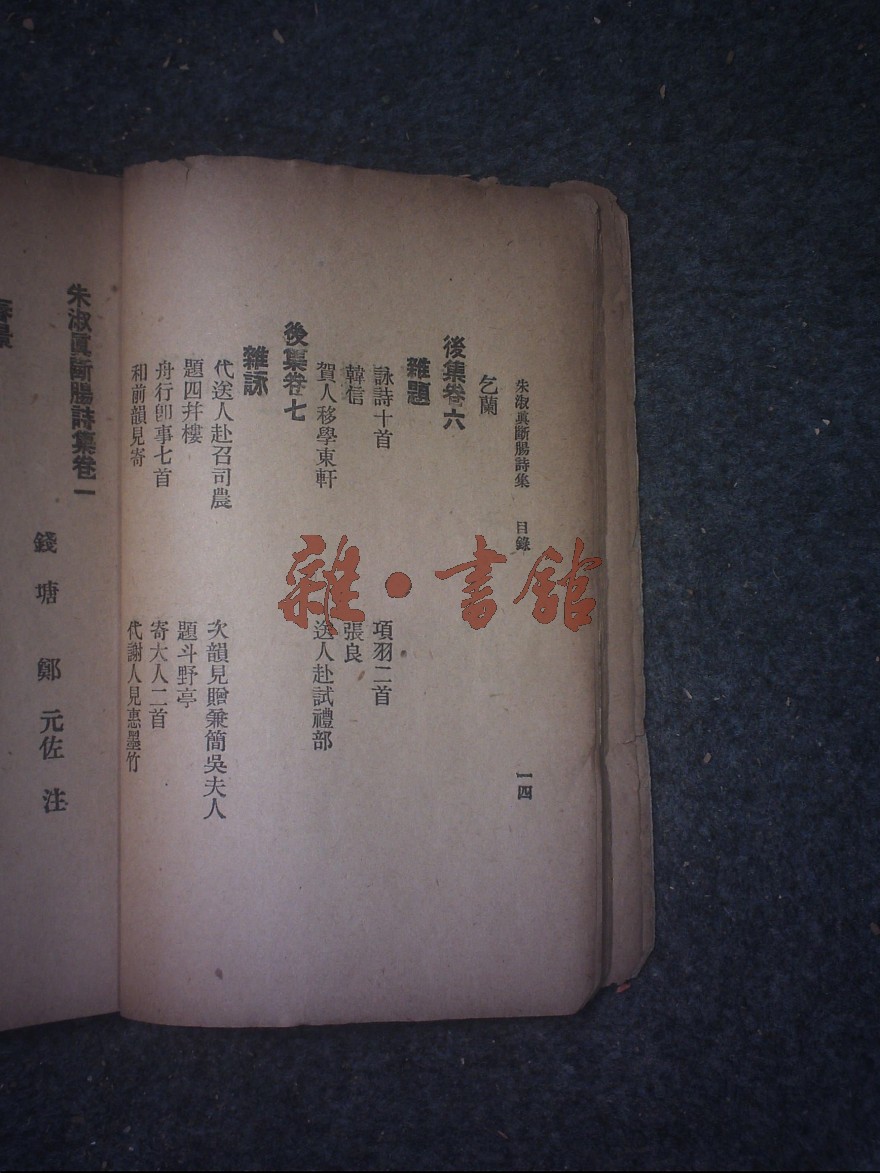 朱淑眞斷腸詩集 目錄 一四
乞蘭
後集卷六
雜題
詠詩十首 項羽二首
韓信 張良
賀人移學東軒 送人赴試禮部
後集卷七
雜詠
代送人赴召司農 次韻見贈兼簡吳夫人
題四井樓 題斗野亭
舟行卽事七首 寄大人二首
和前韻見寄 代謝人見惠墨竹
朱淑眞斷腸詩集卷一
錢塘 鄭元佐 注
春景
雜·書館